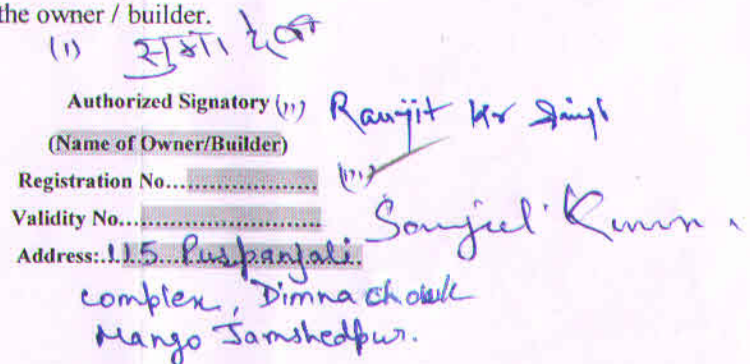 the owner / builder.
(i) सुमा देवी
Authorized Signatory (ii) Ranjit Kr Singh
(Name of Owner/Builder)
Registration No.................... (iii)
Validity No............................
Sanjeet Kumar.
Address:.115 Puspanjali.
complex, Dimna chowk
Mango Jamshedpur.